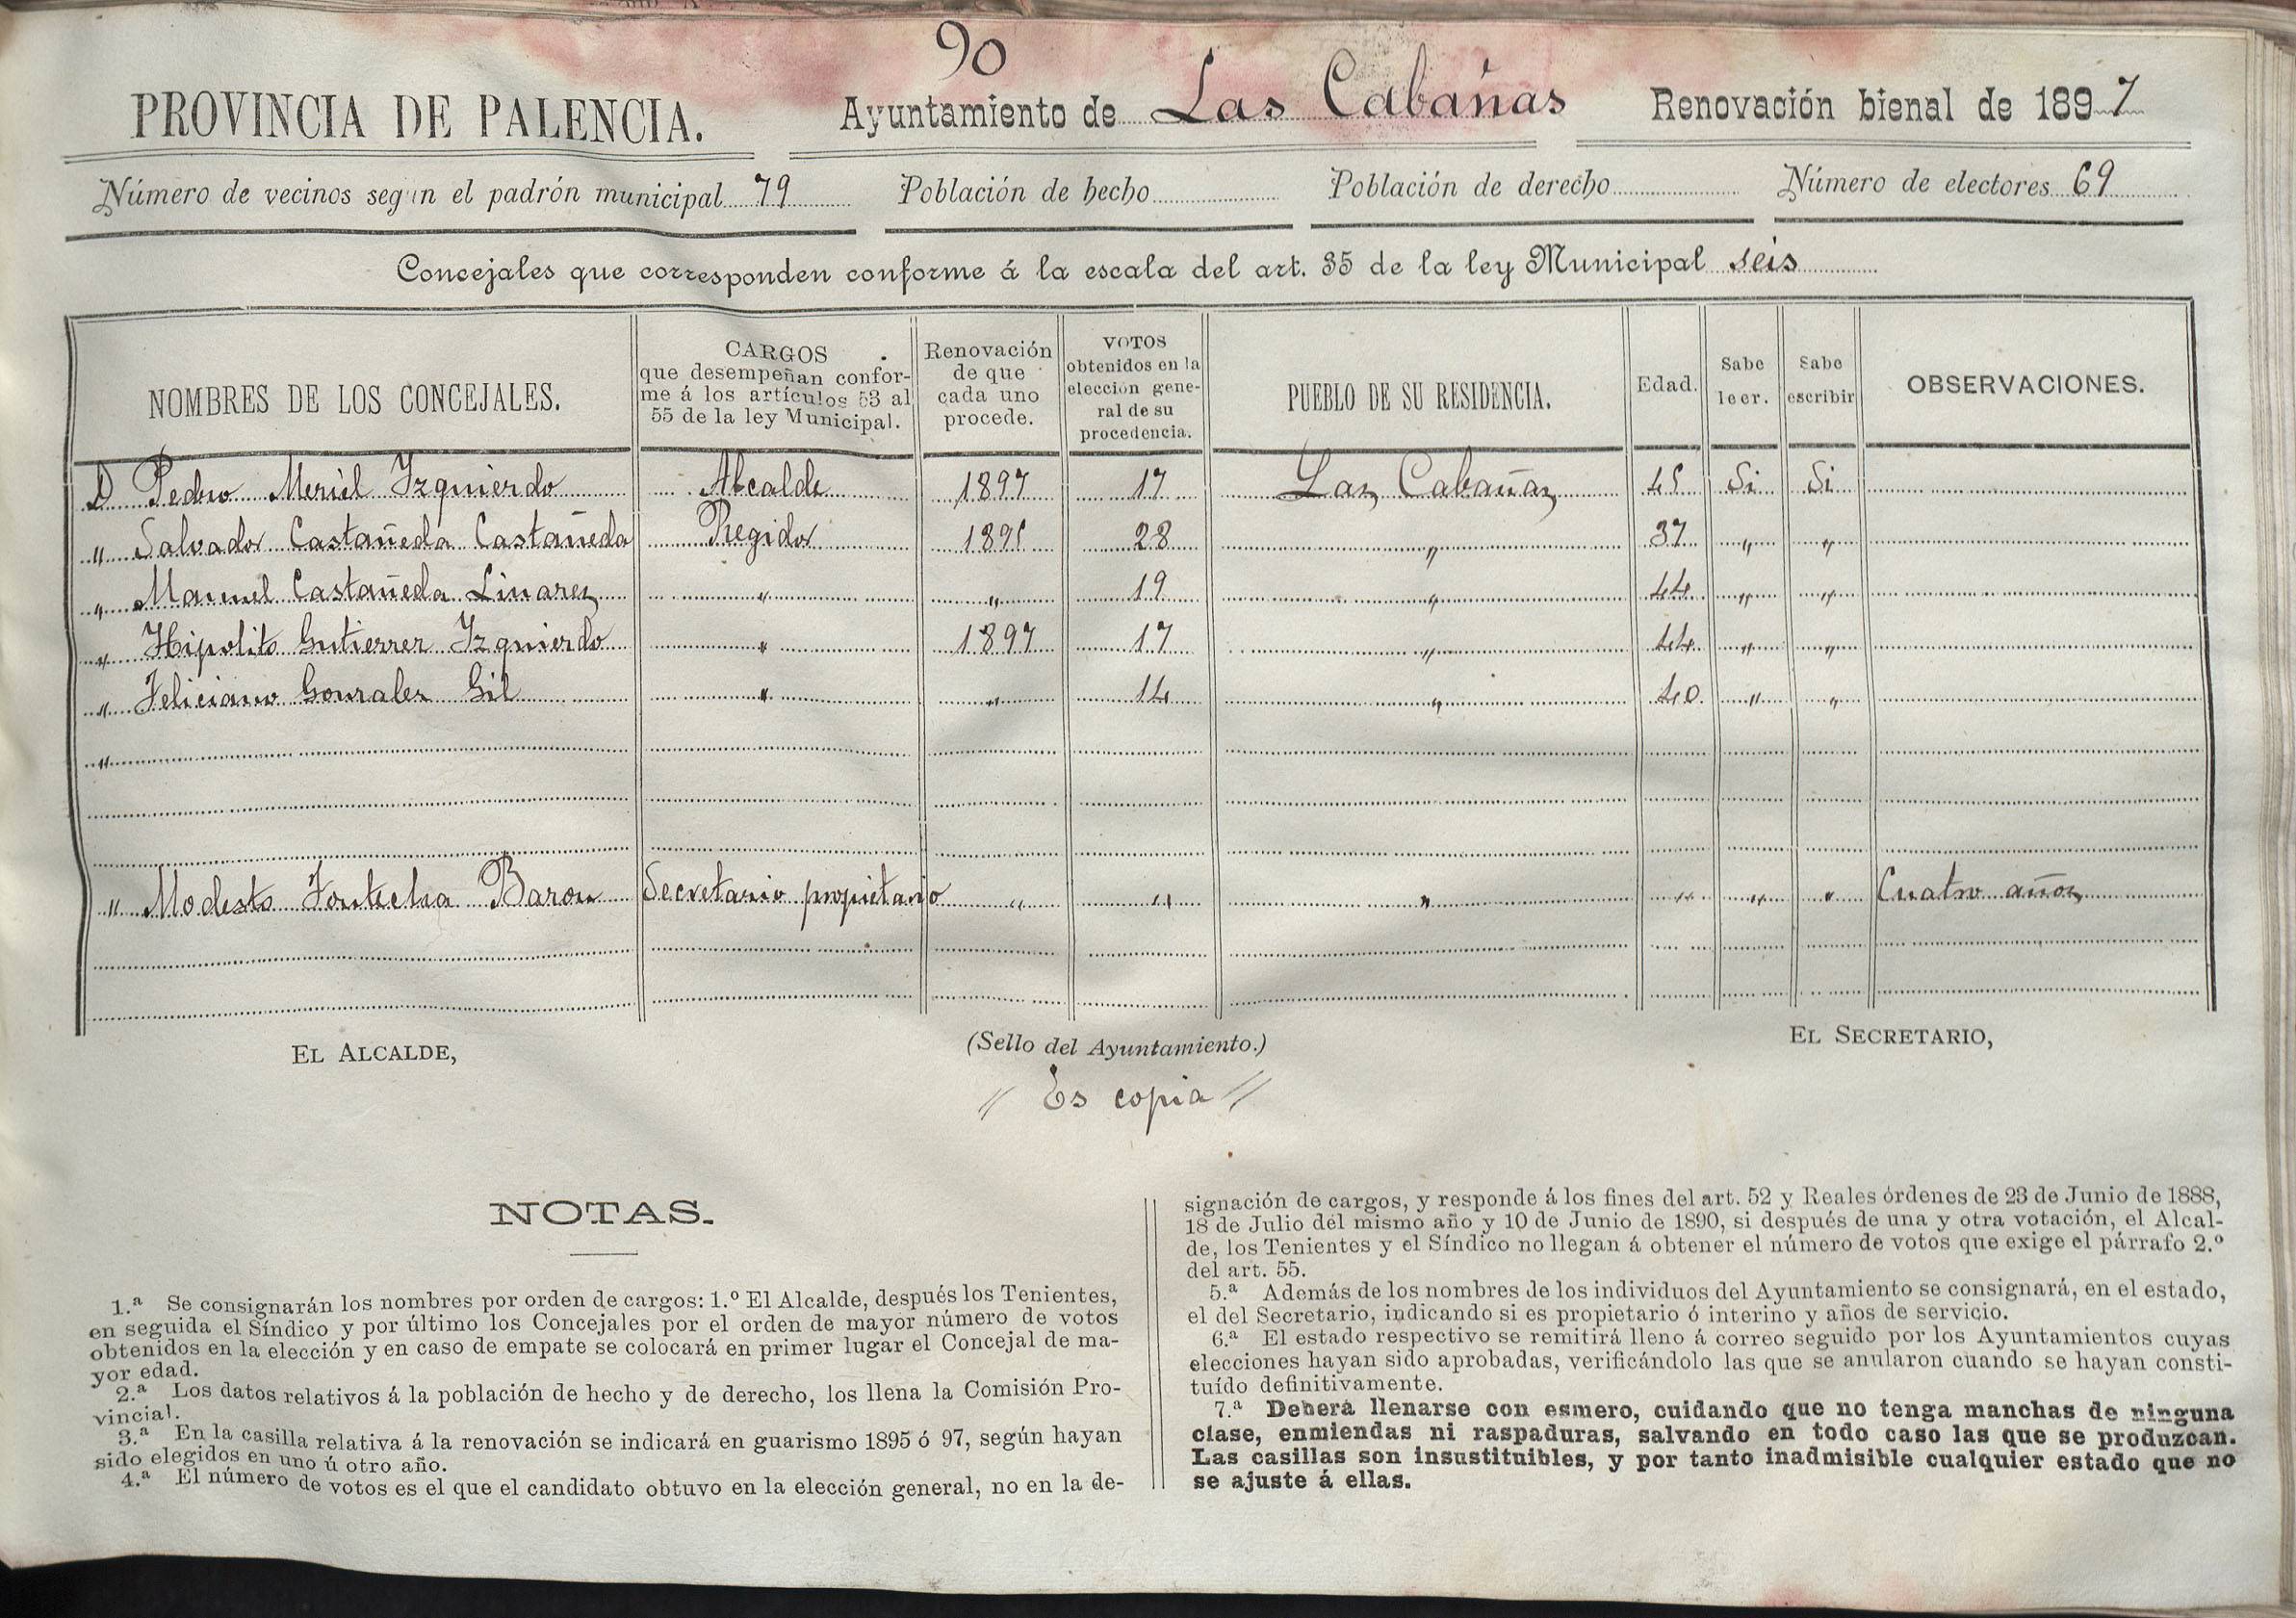 90
PROVINCIA DE PALENCIA. Ayuntamiento de Las Cabañas Renovación bienal de 1897
Número de vecinos según el padrón municipal 79 Población de hecho Población de derecho Número de electores 69
Concejales que corresponden conforme á la escala del art. 35 de la ley Municipal seis
NOMBRES DE LOS CONCEJALES. CARGOS que desempeñan conforme á los artículos 53 al 55 de la ley Municipal. Renovación de que cada uno procede. VOTOS obtenidos en la elección general de su procedencia. PUEBLO DE SU RESIDENCIA. Edad. Sabe leer. Sabe escribir OBSERVACIONES.
D Pedro Meriel Izquierdo Alcalde 1897 17 Las Cabañas 45 Si Si
" Salvador Castañeda Castañeda Regidor 1895 28 " 37 " "
" Manuel Castañeda Linares " " 19 " 44 " "
" Hipolito Gutierrez Izquierdo " 1897 17 " 44 " "
" Feliciano Gonzalez Gil " " 14 " 40 " "
"
" Modesto Fontecha Baron Secretario propietario " " " " " " Cuatro años
EL ALCALDE, (Sello del Ayuntamiento.) EL SECRETARIO,
// Es copia //
NOTAS.
1.ª Se consignarán los nombres por orden de cargos: 1.º El Alcalde, después los Tenientes,
en seguida el Síndico y por último los Concejales por el orden de mayor número de votos
obtenidos en la elección y en caso de empate se colocará en primer lugar el Concejal de ma-
yor edad.
2.ª Los datos relativos á la población de hecho y de derecho, los llena la Comisión Pro-
vincial.
3.ª En la casilla relativa á la renovación se indicará en guarismo 1895 ó 97, según hayan
sido elegidos en uno ú otro año.
4.ª El número de votos es el que el candidato obtuvo en la elección general, no en la de-
signación de cargos, y responde á los fines del art. 52 y Reales órdenes de 23 de Junio de 1888,
18 de Julio del mismo año y 10 de Junio de 1890, si después de una y otra votación, el Alcal-
de, los Tenientes y el Síndico no llegan á obtener el número de votos que exige el párrafo 2.º
del art. 55.
5.ª Además de los nombres de los individuos del Ayuntamiento se consignará, en el estado,
el del Secretario, indicando si es propietario ó interino y años de servicio.
6.ª El estado respectivo se remitirá lleno á correo seguido por los Ayuntamientos cuyas
elecciones hayan sido aprobadas, verificándolo las que se anularon cuando se hayan consti-
tuído definitivamente.
7.ª Deberá llenarse con esmero, cuidando que no tenga manchas de ninguna
clase, enmiendas ni raspaduras, salvando en todo caso las que se produzcan.
Las casillas son insustituibles, y por tanto inadmisible cualquier estado que no
se ajuste á ellas.